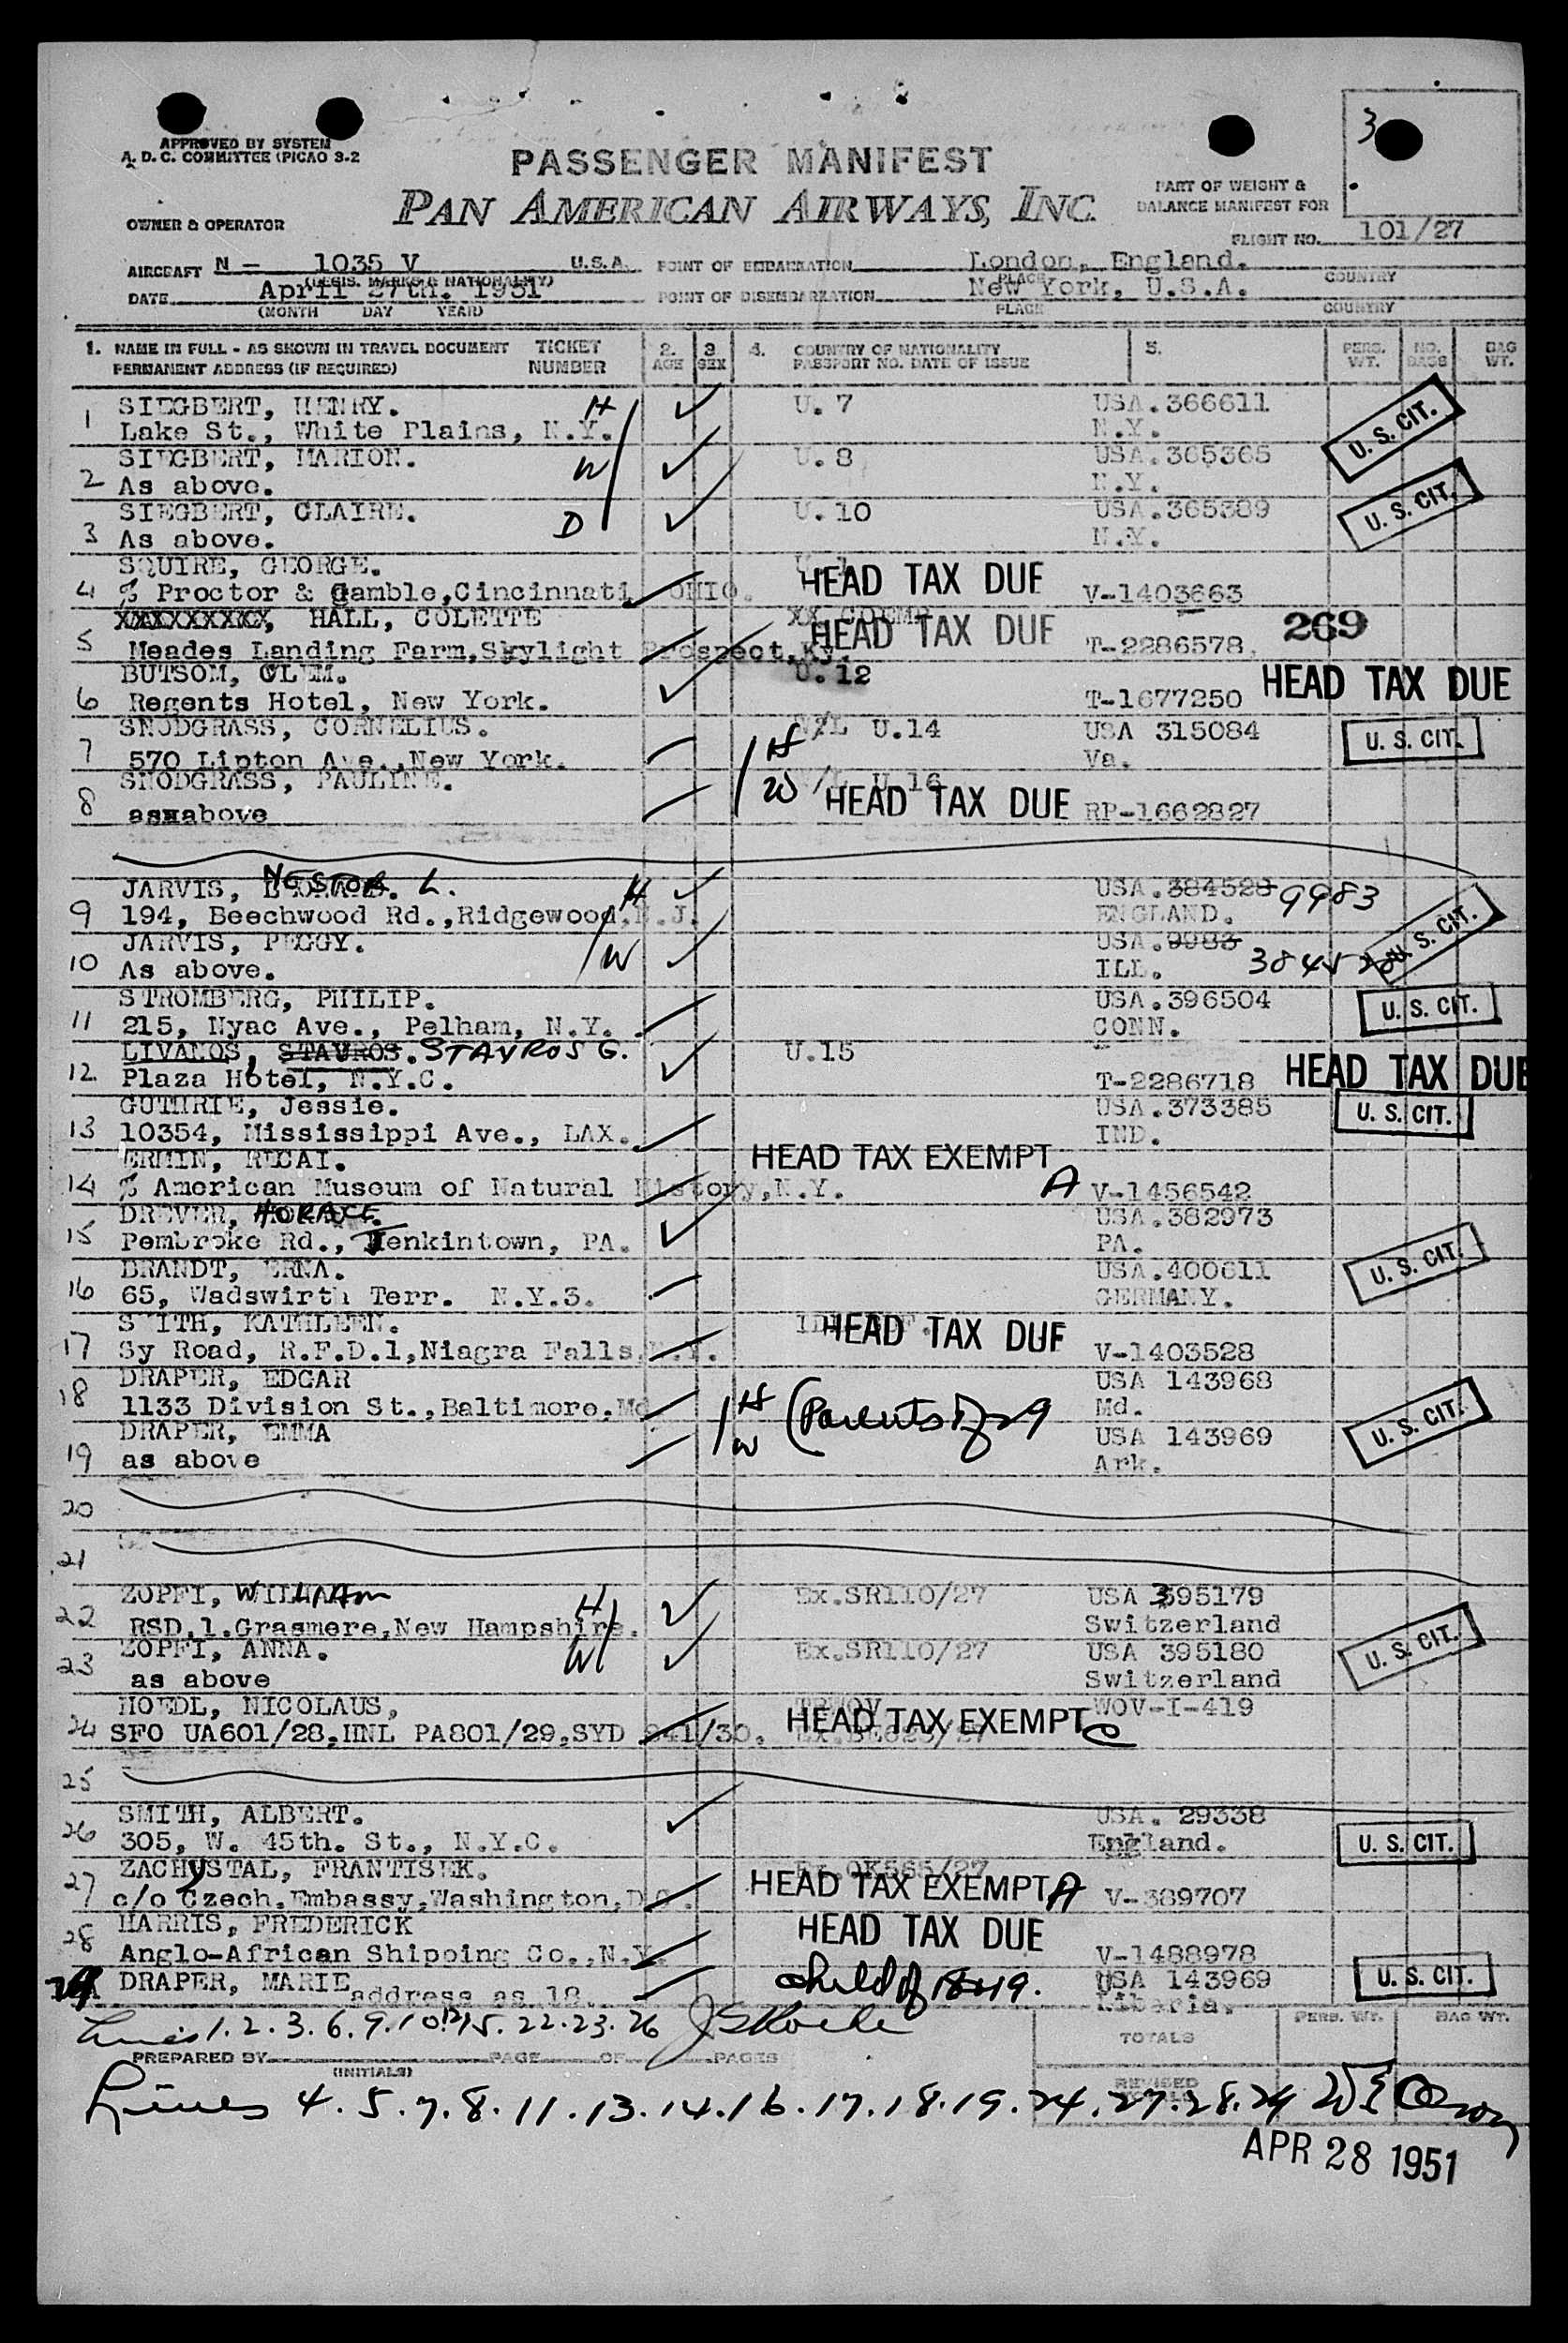 3
APPROVED BY SYSTEM
A. D. C. COMMITTEE (PICAO 3-2
PASSENGER MANIFEST
PAN AMERICAN AIRWAYS, INC.
PART OF WEIGHT &
BALANCE MANIFEST FOR
OWNER & OPERATOR
FLIGHT NO. 101/27
AIRCRAFT N - 1035 V U.S.A. POINT OF EMBARKATION London, England.
(REGIS. MARKS & NATIONALITY) PLACE COUNTRY
DATE April 27th. 1951 POINT OF DISEMBARKATION New York, U.S.A.
(MONTH DAY YEAR) PLACE COUNTRY
1. NAME IN FULL - AS SHOWN IN TRAVEL DOCUMENT TICKET 2. 3 4. COUNTRY OF NATIONALITY 5. PERS. NO. BAG
PERMANENT ADDRESS (IF REQUIRED) NUMBER AGE SEX PASSPORT NO. DATE OF ISSUE WT. BAGS WT.
1 SIEGBERT, HENRY. H U. 7 USA.366611 U. S. CIT.
Lake St., White Plains, N.Y. N.Y.
2 SIEGBERT, MARION. W U. 8 USA.365365
As above. N.Y.
3 SIEGBERT, CLAIRE. D U. 10 USA.365389 U. S. CIT.
As above. N.Y.
SQUIRE, GEORGE.
4 % Proctor & Gamble,Cincinnati OHIO. HEAD TAX DUE V-1403663
XXXXXXXXX, HALL, COLETTE 269
5 Meades Landing Farm,Skylight Prospect,Ky. HEAD TAX DUE T-2286578
BUTSOM, CLEM. U.12
6 Regents Hotel, New York. T-1677250 HEAD TAX DUE
SNODGRASS, CORNELIUS. H U.14 USA 315084 U. S. CIT.
7 570 Linton Ave.,New York. Va.
SNODGRASS, PAULINE. W U.16
8 asxabove HEAD TAX DUE RP-1662827
JARVIS, NESTOR L. H USA.384528 9983
9 194, Beechwood Rd.,Ridgewood,N.J. ENGLAND.
JARVIS, PEGGY. W USA.9983 U. S. CIT.
10 As above. ILL. 384528
STROMBERG, PHILIP. USA.396504 U. S. CIT.
11 215, Nyac Ave., Pelham, N.Y. CONN.
LIVANOS, STAVROS. STAVROS G. U.15
12. Plaza Hotel, N.Y.C. T-2286718 HEAD TAX DUE
GUTHRIE, Jessie. USA.373385 U. S. CIT.
13 10354, Mississippi Ave., LAX. IND.
ERMIN, RECAI. HEAD TAX EXEMPT
14 % American Museum of Natural History,N.Y. A V-1456542
DREVER, HORACE. USA.382973
15 Pembroke Rd., Jenkintown, PA. PA.
BRANDT, ERNA. USA.400611 U. S. CIT.
16 65, Wadswirth Terr. N.Y.3. GERMANY.
SMITH, KATHLEEN. HEAD TAX DUE
17 Sy Road, R.F.D.1,Niagra Falls,N.Y. V-1403528
DRAPER, EDGAR USA 143968
18 1133 Division St.,Baltimore,Md H (Parents of 29 Md. U. S. CIT.
DRAPER, EMMA W USA 143969
19 as above Ark.
20
21
ZOPFI, WILLIAM H Ex.SR110/27 USA 395179
22 RSD.1.Grasmere,New Hampshire. Switzerland
ZOPFI, ANNA. W Ex.SR110/27 USA 395180 U. S. CIT.
23 as above Switzerland
HOEDL, NICOLAUS, WOV-I-419
24 SFO UA601/28,HNL PA801/29,SYD 841/30. HEAD TAX EXEMPT C
25
SMITH, ALBERT. USA. 29338
26 305, W. 45th. St., N.Y.C. England. U. S. CIT.
ZACHYSTAL, FRANTISEK. Ex.OK565/27
27 c/o Czech.Embassy,Washington,D.C. HEAD TAX EXEMPT A V-389707
HARRIS, FREDERICK HEAD TAX DUE
28 Anglo-African Shipping Co.,N.Y. V-1488978
29 DRAPER, MARIE address as 18. child of 18+19. USA 143969 U. S. CIT.
Liberia.
Lines 1. 2. 3. 6. 9. 10. 12. 15. 22. 23. 26
TOTALS PERS. WT. BAG WT.
PREPARED BY PAGE OF PAGES
(INITIALS)
REVISED
Lines 4. 5. 7. 8. 11. 13. 14. 16. 17. 18. 19. 24. 27. 28. 29
APR 28 1951